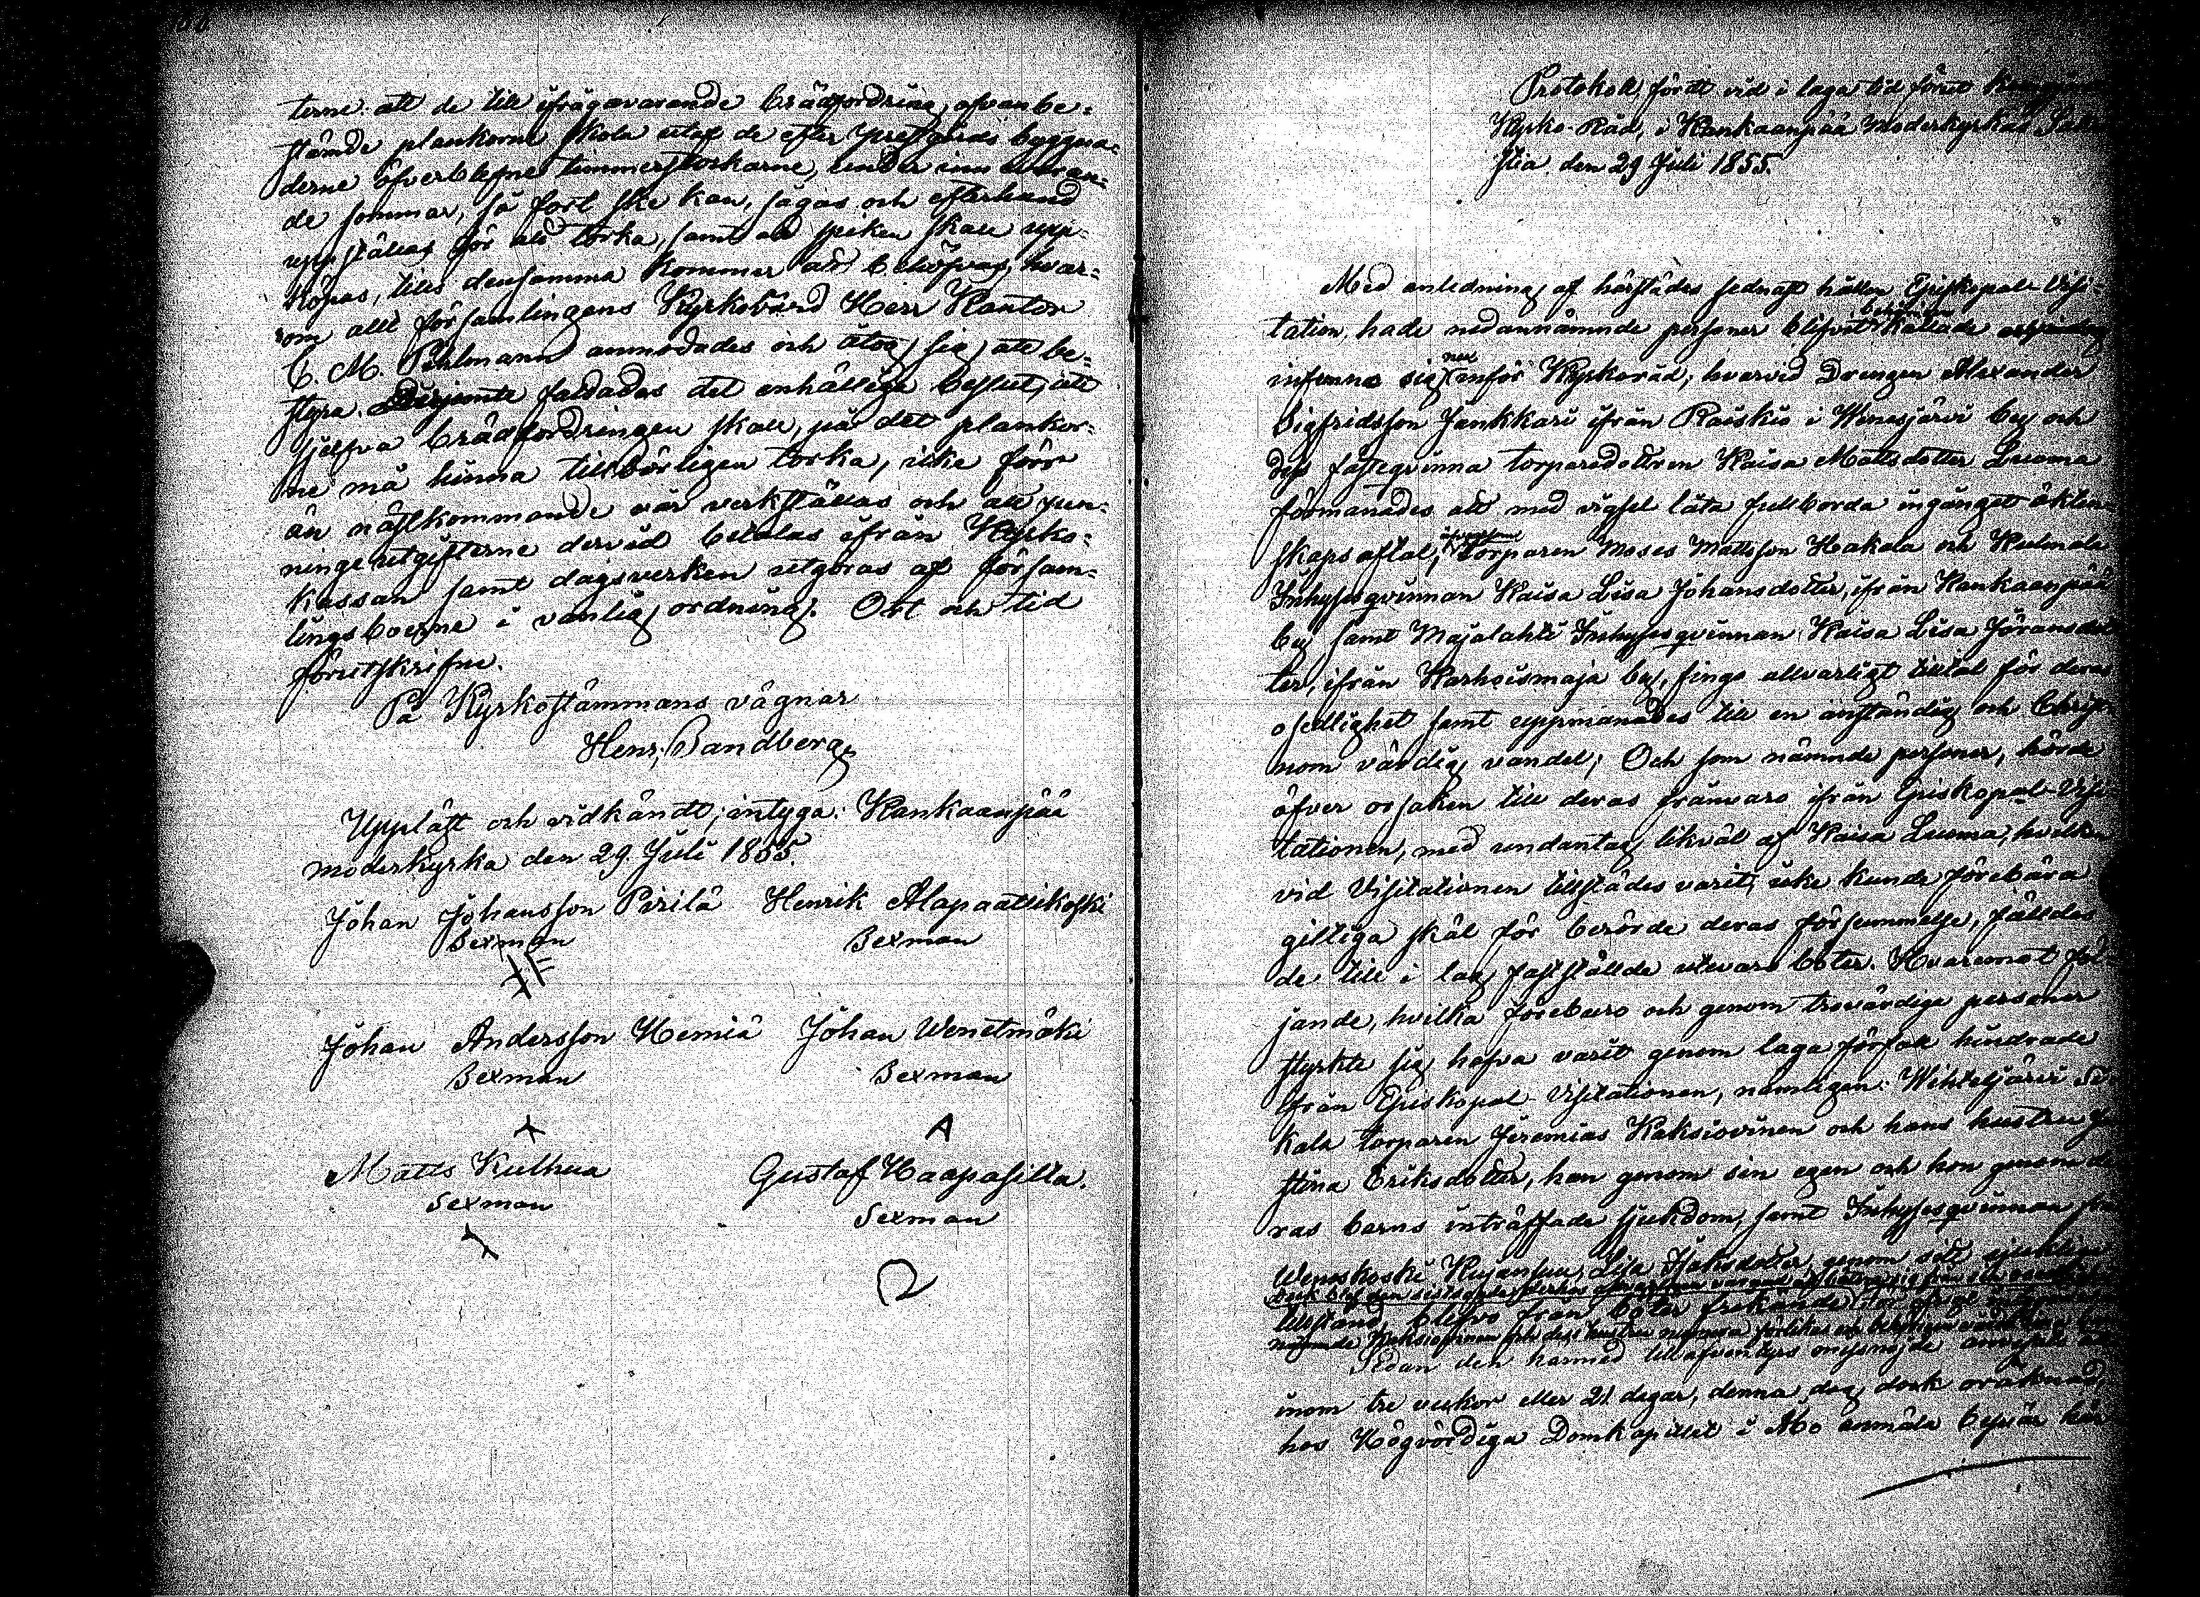 terne att de till ifrågavarande brädfordring, ofvanbe=
stämde plankorne skola utaf de efter prestgårds byggna=
derne öfverblefne timmerstockarne, under innevaran=
de sommar, så fort ske kan, sågas och efterhand
uppställas för att torka, samt att spiken skall upp=
köpas, tills densamma kommer att behöfvas, hvar=
om allt församlingens Kyrkovärd Herr Kantor
C. M. Pihlmann anmodades och åtog sig att be=
styra. Derjemte fattades det enhälliga beslut, att
sjelfva brädfordringen skall, på det plankor=
ne må hinna tillbörligen torka, icke förr
än nästkommande vår verkställas och alla pen=
ninge utgifterne dervid betalas ifrån Kyrko=
kassan samt dagsverken utgöras af försam=
lingsboerne i vanlig ordning. Ort och tid
förutskrifne.
På Kyrkostämmans vägnar
Henr. Sandberg
Uppläst och vidkändt, intyga: Kankaanpää
moderkyrka den 29 Juli 1855.
Johan Johansson Pirilä Henrik Alapaattikoski
Sexman Sexman
Johan Andersson Hemiä Johan Wenetmäki
Sexman Sexman
A
Matts Kulhua Gustaf Haapasilta.
Sexman Sexman
Protokoll, fördt vid i laga tid förut
Kyrko-Råd, i Kankaanpää Moderkyrkas Sakri
stia den 29 Juli 1855.
Med anledning af härstädes sednast hållen Episkopal-Visi=
tation, hade nedannämnde personer blifvit kallade
infunno sig nu inför Kyrkoråd; hvarvid Drengen Alexander
Sigfridsson Jankkari ifrån Raiskio i Wenesjärvi by och
dess fästeqvinna torparedottren Kaisa Mattsdotter Luoma
förmanades att med vigsel låta fullborda ingånget äkten
skaps aftal, Torparen Moses Mattsson Hakala och
Inhysesqvinnan Kaisa Lisa Johansdotter, ifrån Kankaanpää
by samt Majalahti Inhysesqvinnan Kaisa Lisa Göransdot
ter, ifrån Karhoismaja by, fingo allvarligt tilltal för deras
osedlighet samt uppmanades till en anständig och Christ
nom värdig vandel; Och som nämnde personer, hörde
öfver orsaken till deras frånvaro ifrån Episkopal-Visi
tationen, med undantag likväl af Kaisa Luoma, hvilken
vid Visitationen tillstädes varit, icke kunde förebära
giltiga skäl för berörde deras försummelse, fälldes
de till i lag fastställde utevaro böter. Hvaremot föl
jande, hvilka föreburo och genom trovärdiga personer
styrkte sig hafva varit genom laga förfall hindrade
från Episkopal-Visitationen, nämligen: Wihteljärvi
kala torparen Jeremias Kaksiovinen och hans hustru
stina Eriksdotter, han genom sin egen och hon genom de
ras barns inträffade sjukdom, samt Inhysesqvinnan från
Weneskoski Kujanpuu, Lisa Isaksdotter, genom sitt sjukliga
tillstånd, blefvo från böter frikände
Sedan den härmed tilläfventyrs missnöjde
inom tre veckor eller 21 dagar, denna dag dock oräknad,
hos Högvördiga Domkapitlet i Åbo anmäla besvär här